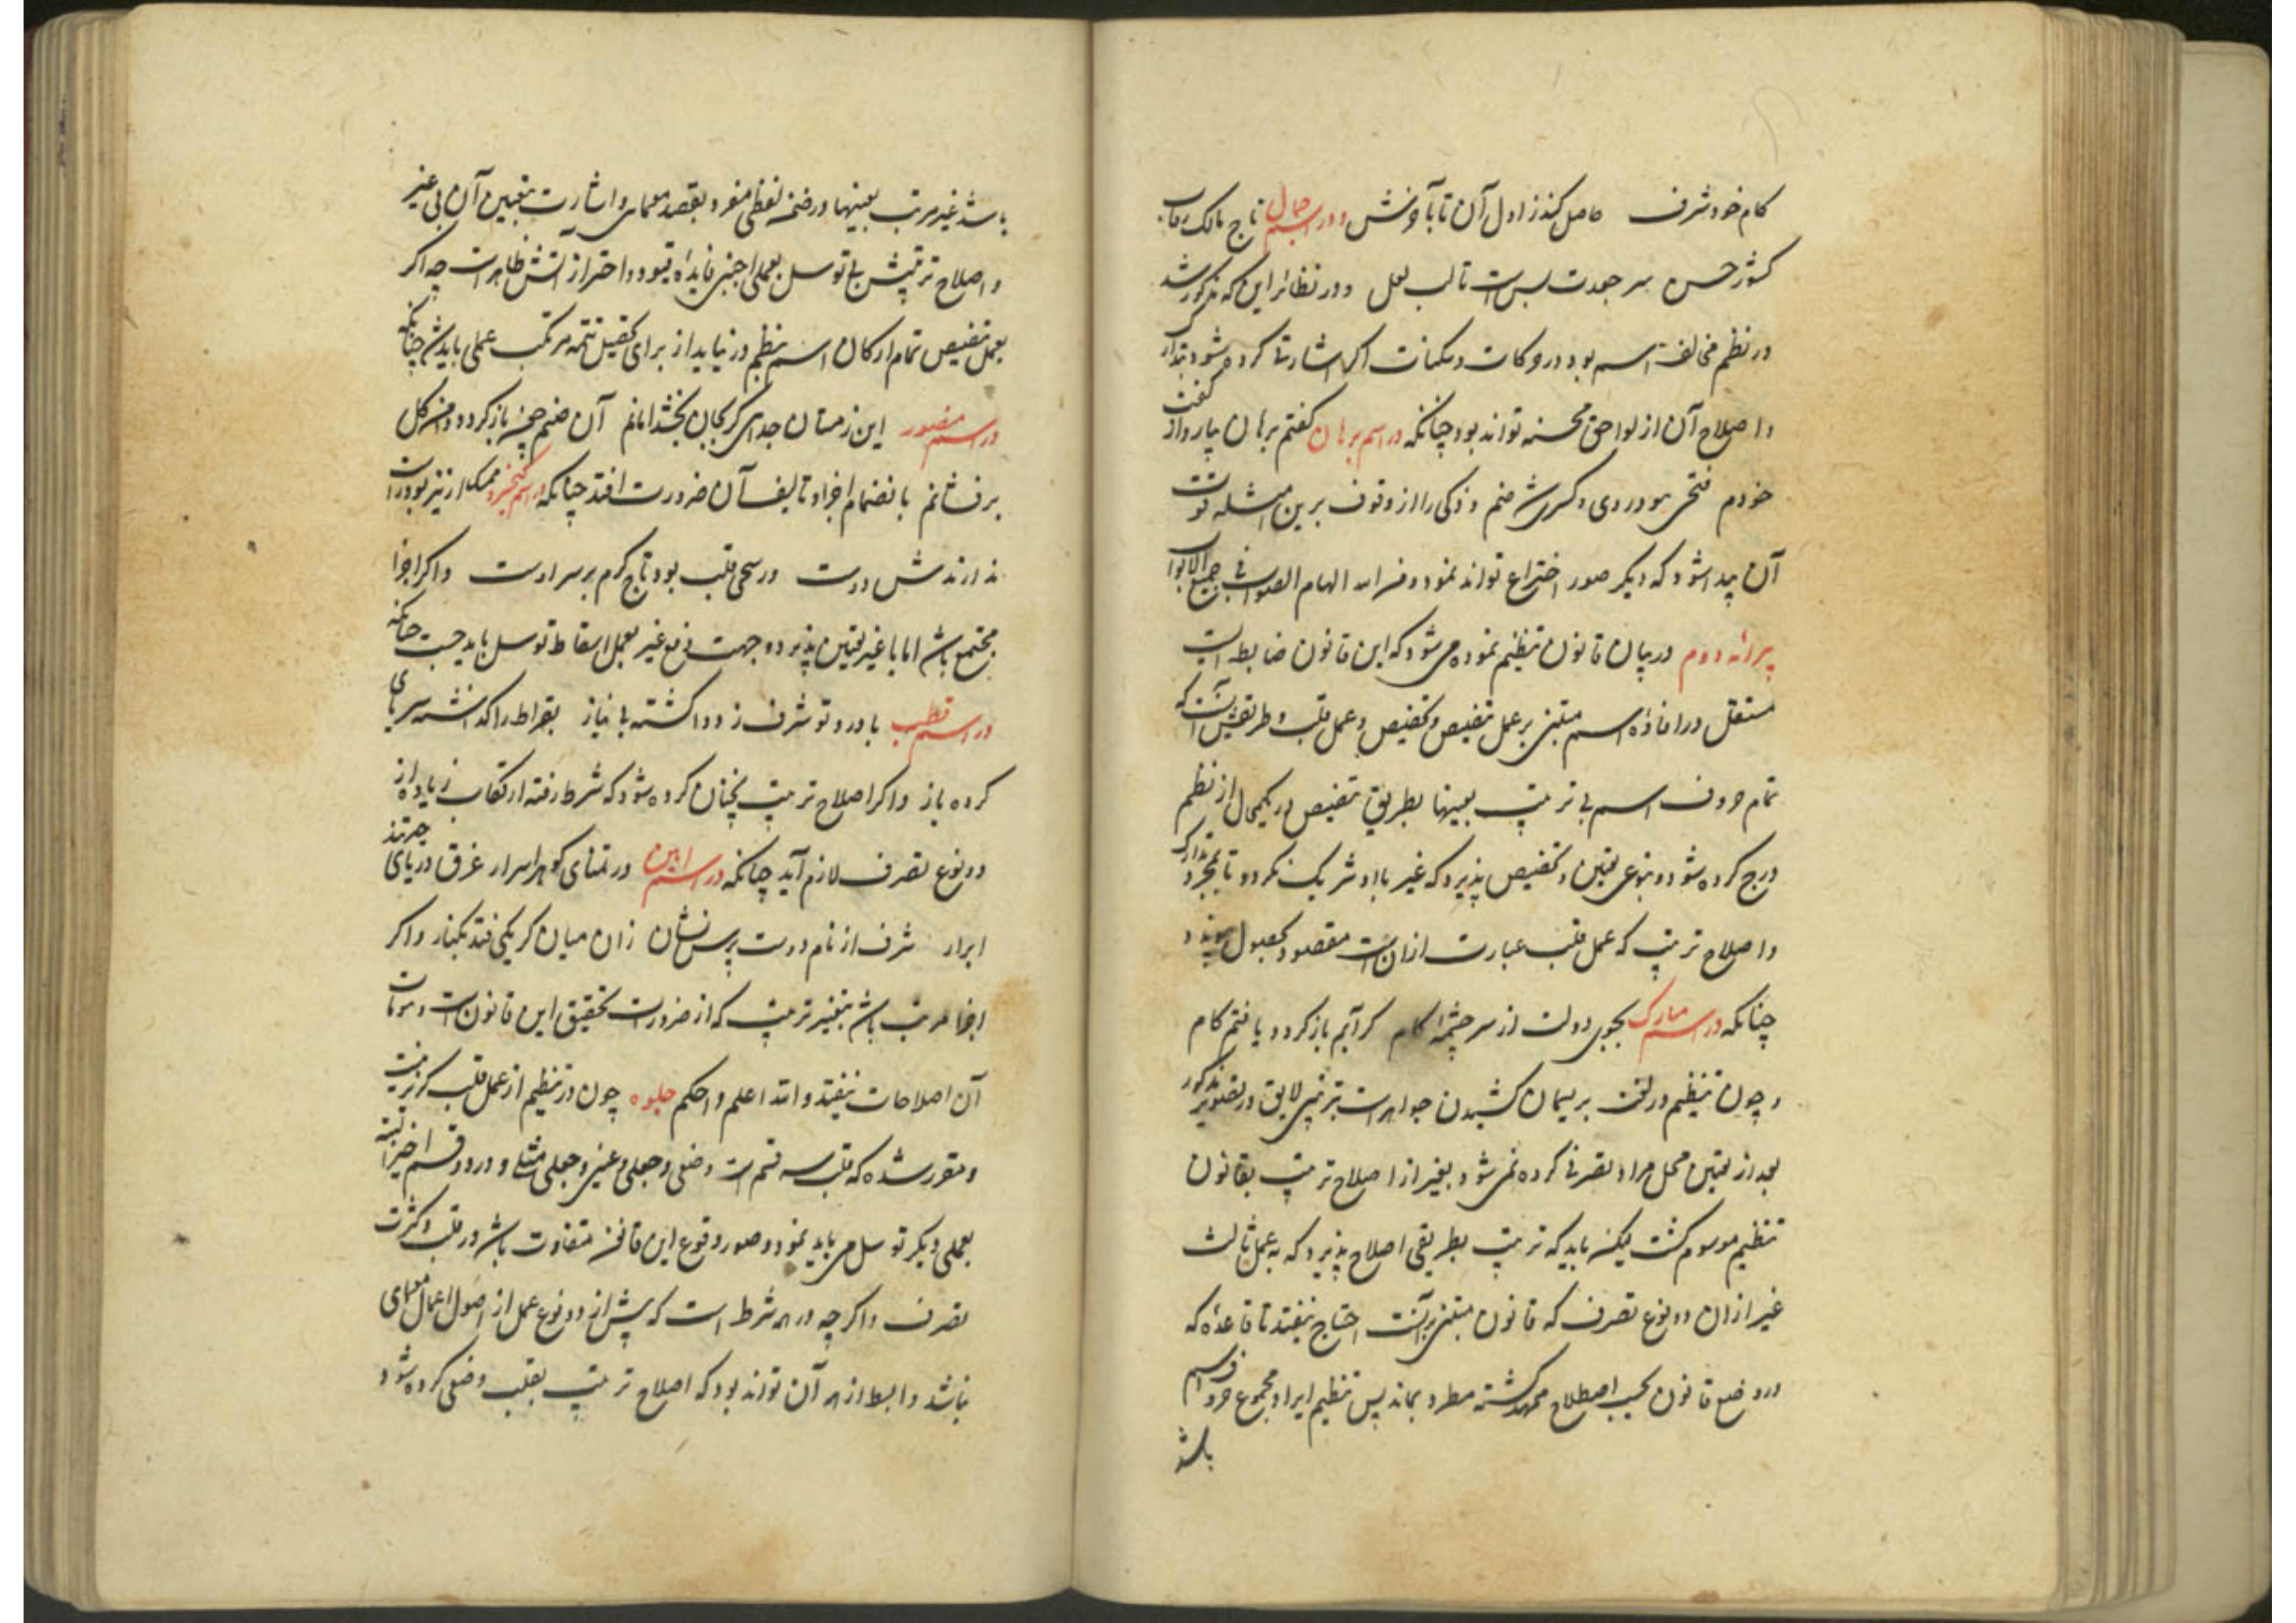 کام خود شرف حاصل کند ز اول آن تا بآخرش و در اسم جمال تاج مالک رقاب
کشور حسن سر جعدت بس است تا لب لعل و در نظائر این که مذکور شد
در نظم مخالف اسم بود در حرکات و سکنات اگر اشارتی کرده شود بتدارک
و اصلاح آن از لواحق محسنه تواند بود چنانکه در اسم برهان گفتم برهان یار و از گفت
خودم فتحی بود روی و کسری شد ضم و ذکی را از وقوف برین امثله قوت
آن پیدا شود که دیگر صور اختراع تواند نمود و من الله الهام الصواب فی جمیع الابواب
پیرائه دوم در بیان قانون تنظیم نموده می شود که این قانون ضابطه ایست
مستقل در افاده اسم مبتنی بر عمل تنصیص و تخصیص و عمل قلب و طریقش آنست که
تمام حروف اسم بی ترتیب بعینها بطریق تنصیص در یکمحال از نظم
درج کرده شود و بنوعی تعیین و تخصیص پذیرد که غیر با او شریک نگردد تا بمجرد تدارک
و اصلاح ترتیب که عمل قلب عبارت از آن است مقصود بحصول پیوندد
چنانکه در اسم مبارک بجوی دولت از سر چشمهٔ کام گر آبم باز گردد یافتم کام
و چون تنظیم در لغت بریسمان کشیدن جواهر است بترتیبی لایق و در تصویر مذکور
بعد از تعیین محل مراد تصرفی کرده نمی شود بغیر از اصلاح ترتیب بقانون
تنظیم موسوم گشت لیکن باید که ترتیب بطریقی اصلاح پذیرد که به عمل ثالث
غیر از آن دو نوع تصرف که قانون مبتنی بر آنست احتیاج نیفتد تا قاعده که
در وضع قانون بحسب اصطلاح ممهد گشته مطرد بماند پس تنظیم ایراد مجموع حروف اسم
باشد
باشد غیر مرتب بعینها در ضمن لفظی مفرد بقصد معمای و اشارت بتعیین آن بی غیر
و اصلاح ترتیبش بی توسل بعملی اجنبی فایده قیود و احتراز آتش ظاهر است چه اگر
بعمل تنصیص تمام ارکان اسم بنظم در نیاید از برای تحصیل تتمه مرتکب عملی باید شد چنانکه
در اسم منصور این زمستان جدای گر بجان بخشد امانم آن صنم چون باز گردد من گل
برفشانم بانضمام اجزا و تالیف آن ضرورت افتد چنانکه در اسم کیخسرو ممسک ار نیز بود را
ندارندش دوست ور سخی قلب بود تاج کرم بر سر اوست و اگر اجزا
مجتمع باشد اما با غیر تعیین پذیرد و جهت دفع غیر بعمل اسقاط توسل باید جست چنانکه
در اسم قطب با درد تو شرف ز دوا گشته بی نیاز بقراط را گذاشته سر پای
کرده باز و اگر اصلاح ترتیب بچنان کرده شود که شرط رفته ارتکاب زیاده از
دو نوع تصرف لازم آید چنانکه در اسم امین در تمنای گوهر اسرار غرق دریای حیرتند
ابرار شرف از نام دوست پرس نشان زان میان گر یکی فتد بکنار و اگر
اجزا مرتب باشد بتغییر ترتیب که از ضرورت تحقیق این قانون است و موقات
آن اصلاحات نیفتد و الله اعلم و احکم جلوه چون در تنظیم از عمل قلب گزیر نیست
و مقرر شده که قلب سه قسم است وضعی و جعلی و عینی و جعلی مثلی و در دو قسم اخیر البته
بعملی دیگر توسل می باید نمود و صور وقوع این قانون متفاوت باشد در قلت و کثرت
تصرف و اگر چه در همه شرط است که بیش از دو نوع عمل از اصول اعمال معمای
نباشد و ابسط از همه آن تواند بود که اصلاح ترتیب بقلب وضعی کرده شود